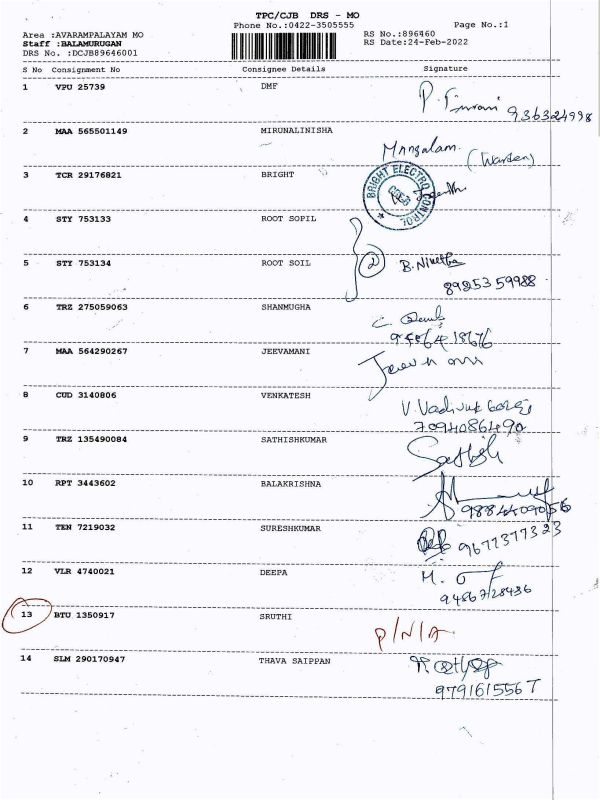 TPC/CJB DRS - MO
Phone No.:0422-3505555
Page No.:1
Area :AVARAMPALAYAM MO
Staff :BALAMURUGAN
DRS No. :DCJB89646001
RS No.:896460
RS Date:24-Feb-2022
S No Consignment No Consignee Details Signature
1 VPU 25739 DMF
936324998
2 MAA 565501149 MIRUNALINISHA
Mangalam.
(Warden)
3 TCR 29176821 BRIGHT
BRIGHT ELECTRO CONTROL
4 STY 753133 ROOT SOPIL
5 STY 753134 ROOT SOIL
2 B. Nivetha
89253 59988
6 TRZ 275059063 SHANMUGHA
7 MAA 564290267 JEEVAMANI
8 CUD 3140806 VENKATESH
7094086490
9 TRZ 135490084 SATHISHKUMAR
Sathish
10 RPT 3443602 BALAKRISHNA
11 TEN 7219032 SURESHKUMAR
9677377323
12 VLR 4740021 DEEPA
9486728436
13 BTU 1350917 SRUTHI
P/N/A
14 SLM 290170947 THAVA SAIPPAN
9791615567